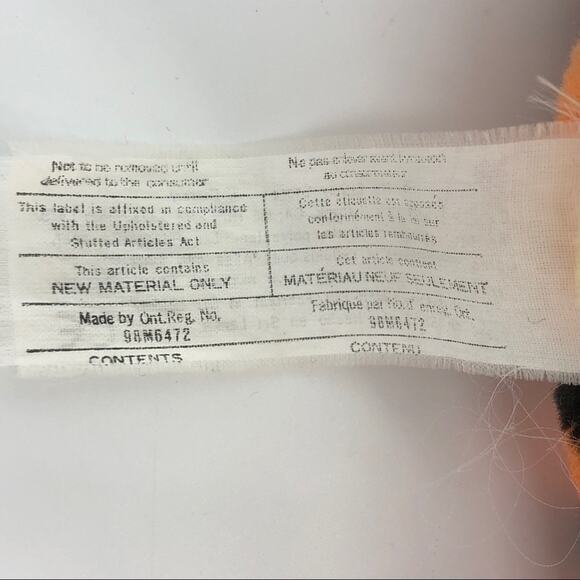 Not to be removed until
delivered to the consumer
Ne pas enlever avant livraison
au consommateur
This label is affixed in compliance
with the Upholstered and
Stuffed Articles Act
Cette étiquette est apposée
conformément à la loi sur
les articles rembourrés
This article contains
NEW MATERIAL ONLY
Cet article contient
MATÉRIAU NEUF SEULEMENT
Made by Ont.Reg. No.
98M6472
Fabriqué par No. d' enreg. Ont.
98M6472
CONTENTS
CONTENU